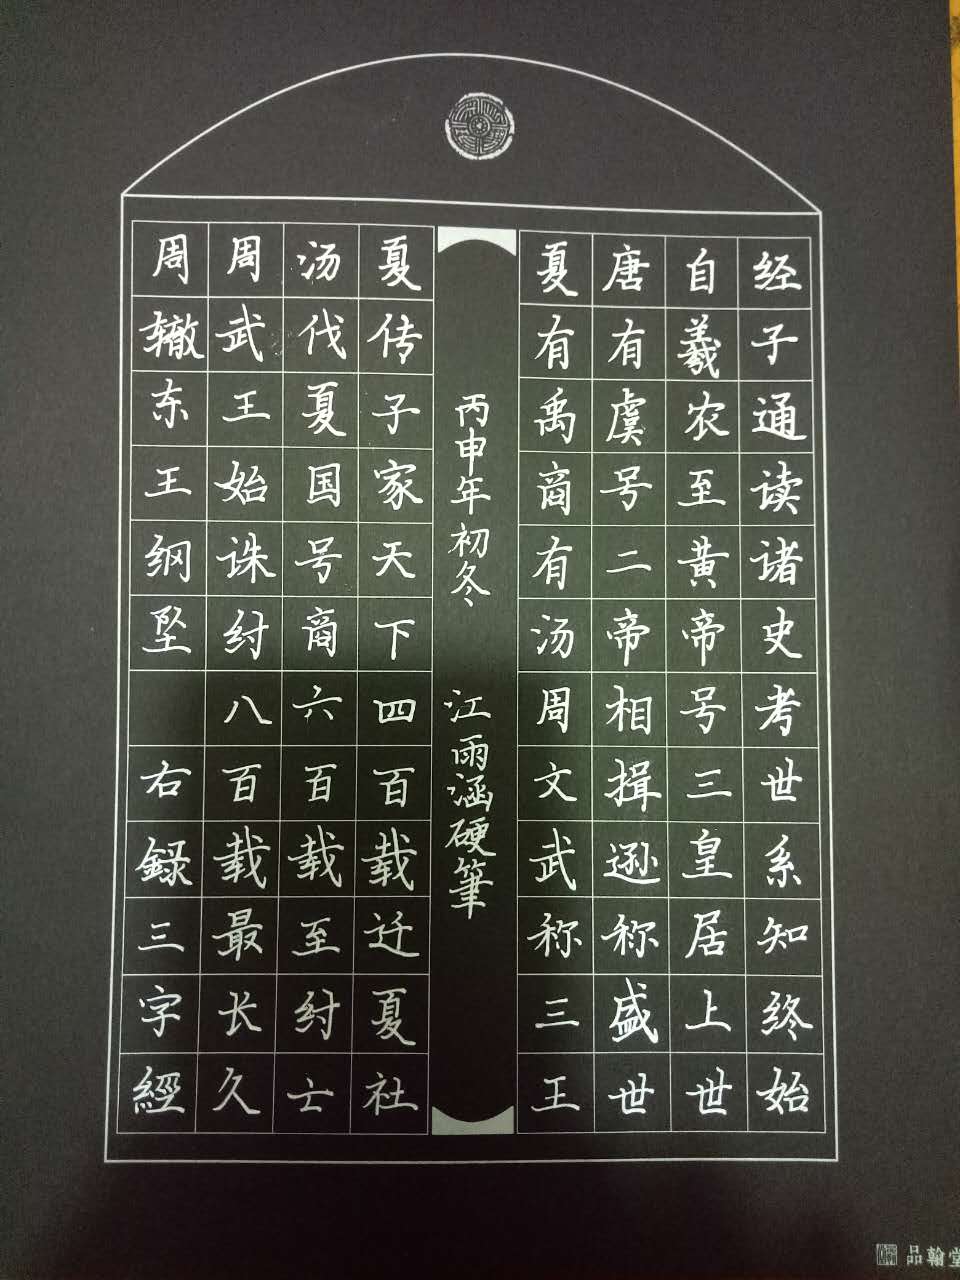 经子通读诸史考世系知终始
自羲农至黄帝号三皇居上世
唐有虞号二帝相揖逊称盛世
夏有禹商有汤周文武称三王
丙申年初冬 江雨涵硬筆
夏传子家天下四百载迁夏社
汤伐夏国号商六百载至纣亡
周武王始诛纣八百载最长久
周辙东王纲坠 右録三字經
品翰堂